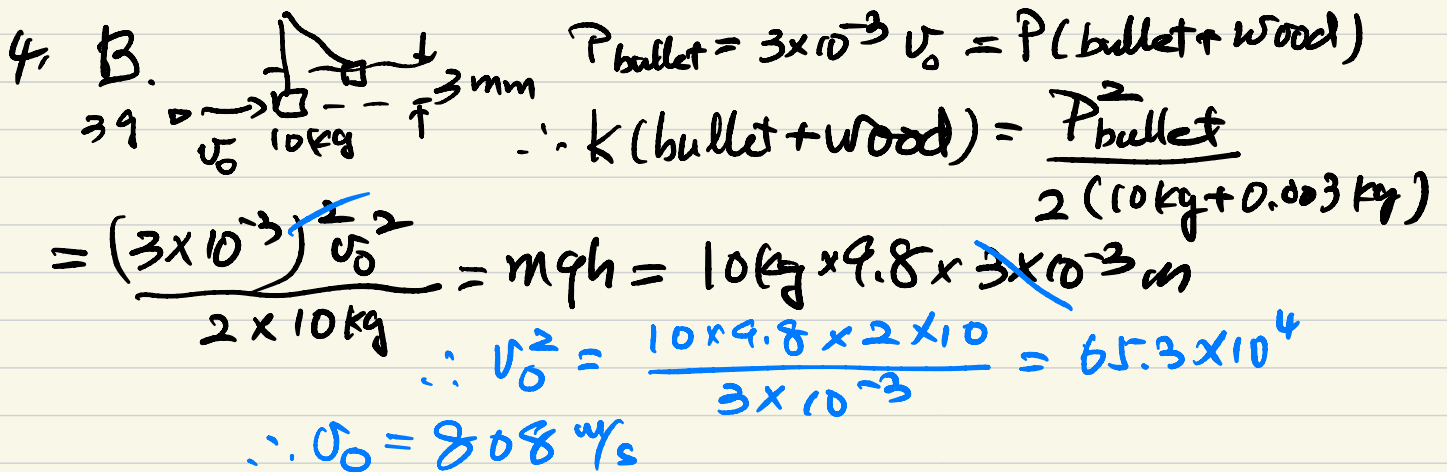 4, B. P bullet = 3×10⁻³ v₀ = P(bullet + wood)
3g v₀ 10kg 3mm
∴ K(bullet + wood) = P²bullet / 2(10kg + 0.003kg)
= (3×10⁻³)² v₀² / 2 × 10kg = mgh = 10kg × 9.8 × 3×10⁻³ m
∴ v₀² = 10×9.8×2×10 / 3×10⁻³ = 65.3×10⁴
∴ v₀ = 808 m/s